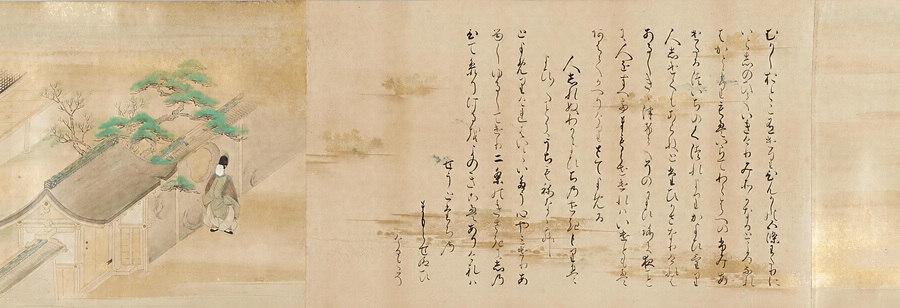 むかしおとこ有けりひんかしの五條わたりに
いとしのひていきけりみそかなる所なれは
かとよりもえいらてわらはへのふみあ
けたるついちのくつれよりかよひけり
人しけくもあらねとたひかさなりけれは
あるしきゝつけてそのかよひ路に夜こと
に人をすへてまもらせけれはいけともえ
あはてかへりけりさてよめる
人しれぬわかかよひちの関もりは
よひ〱ことにうちもねなゝん
とよめりけれはいといたう心やみけりあ
るしゆるしてけり二条のきさきにしのひ
てまいりけるを世のきこえありけれは
せうとたちの
まもらせ給ひ
けるとそ